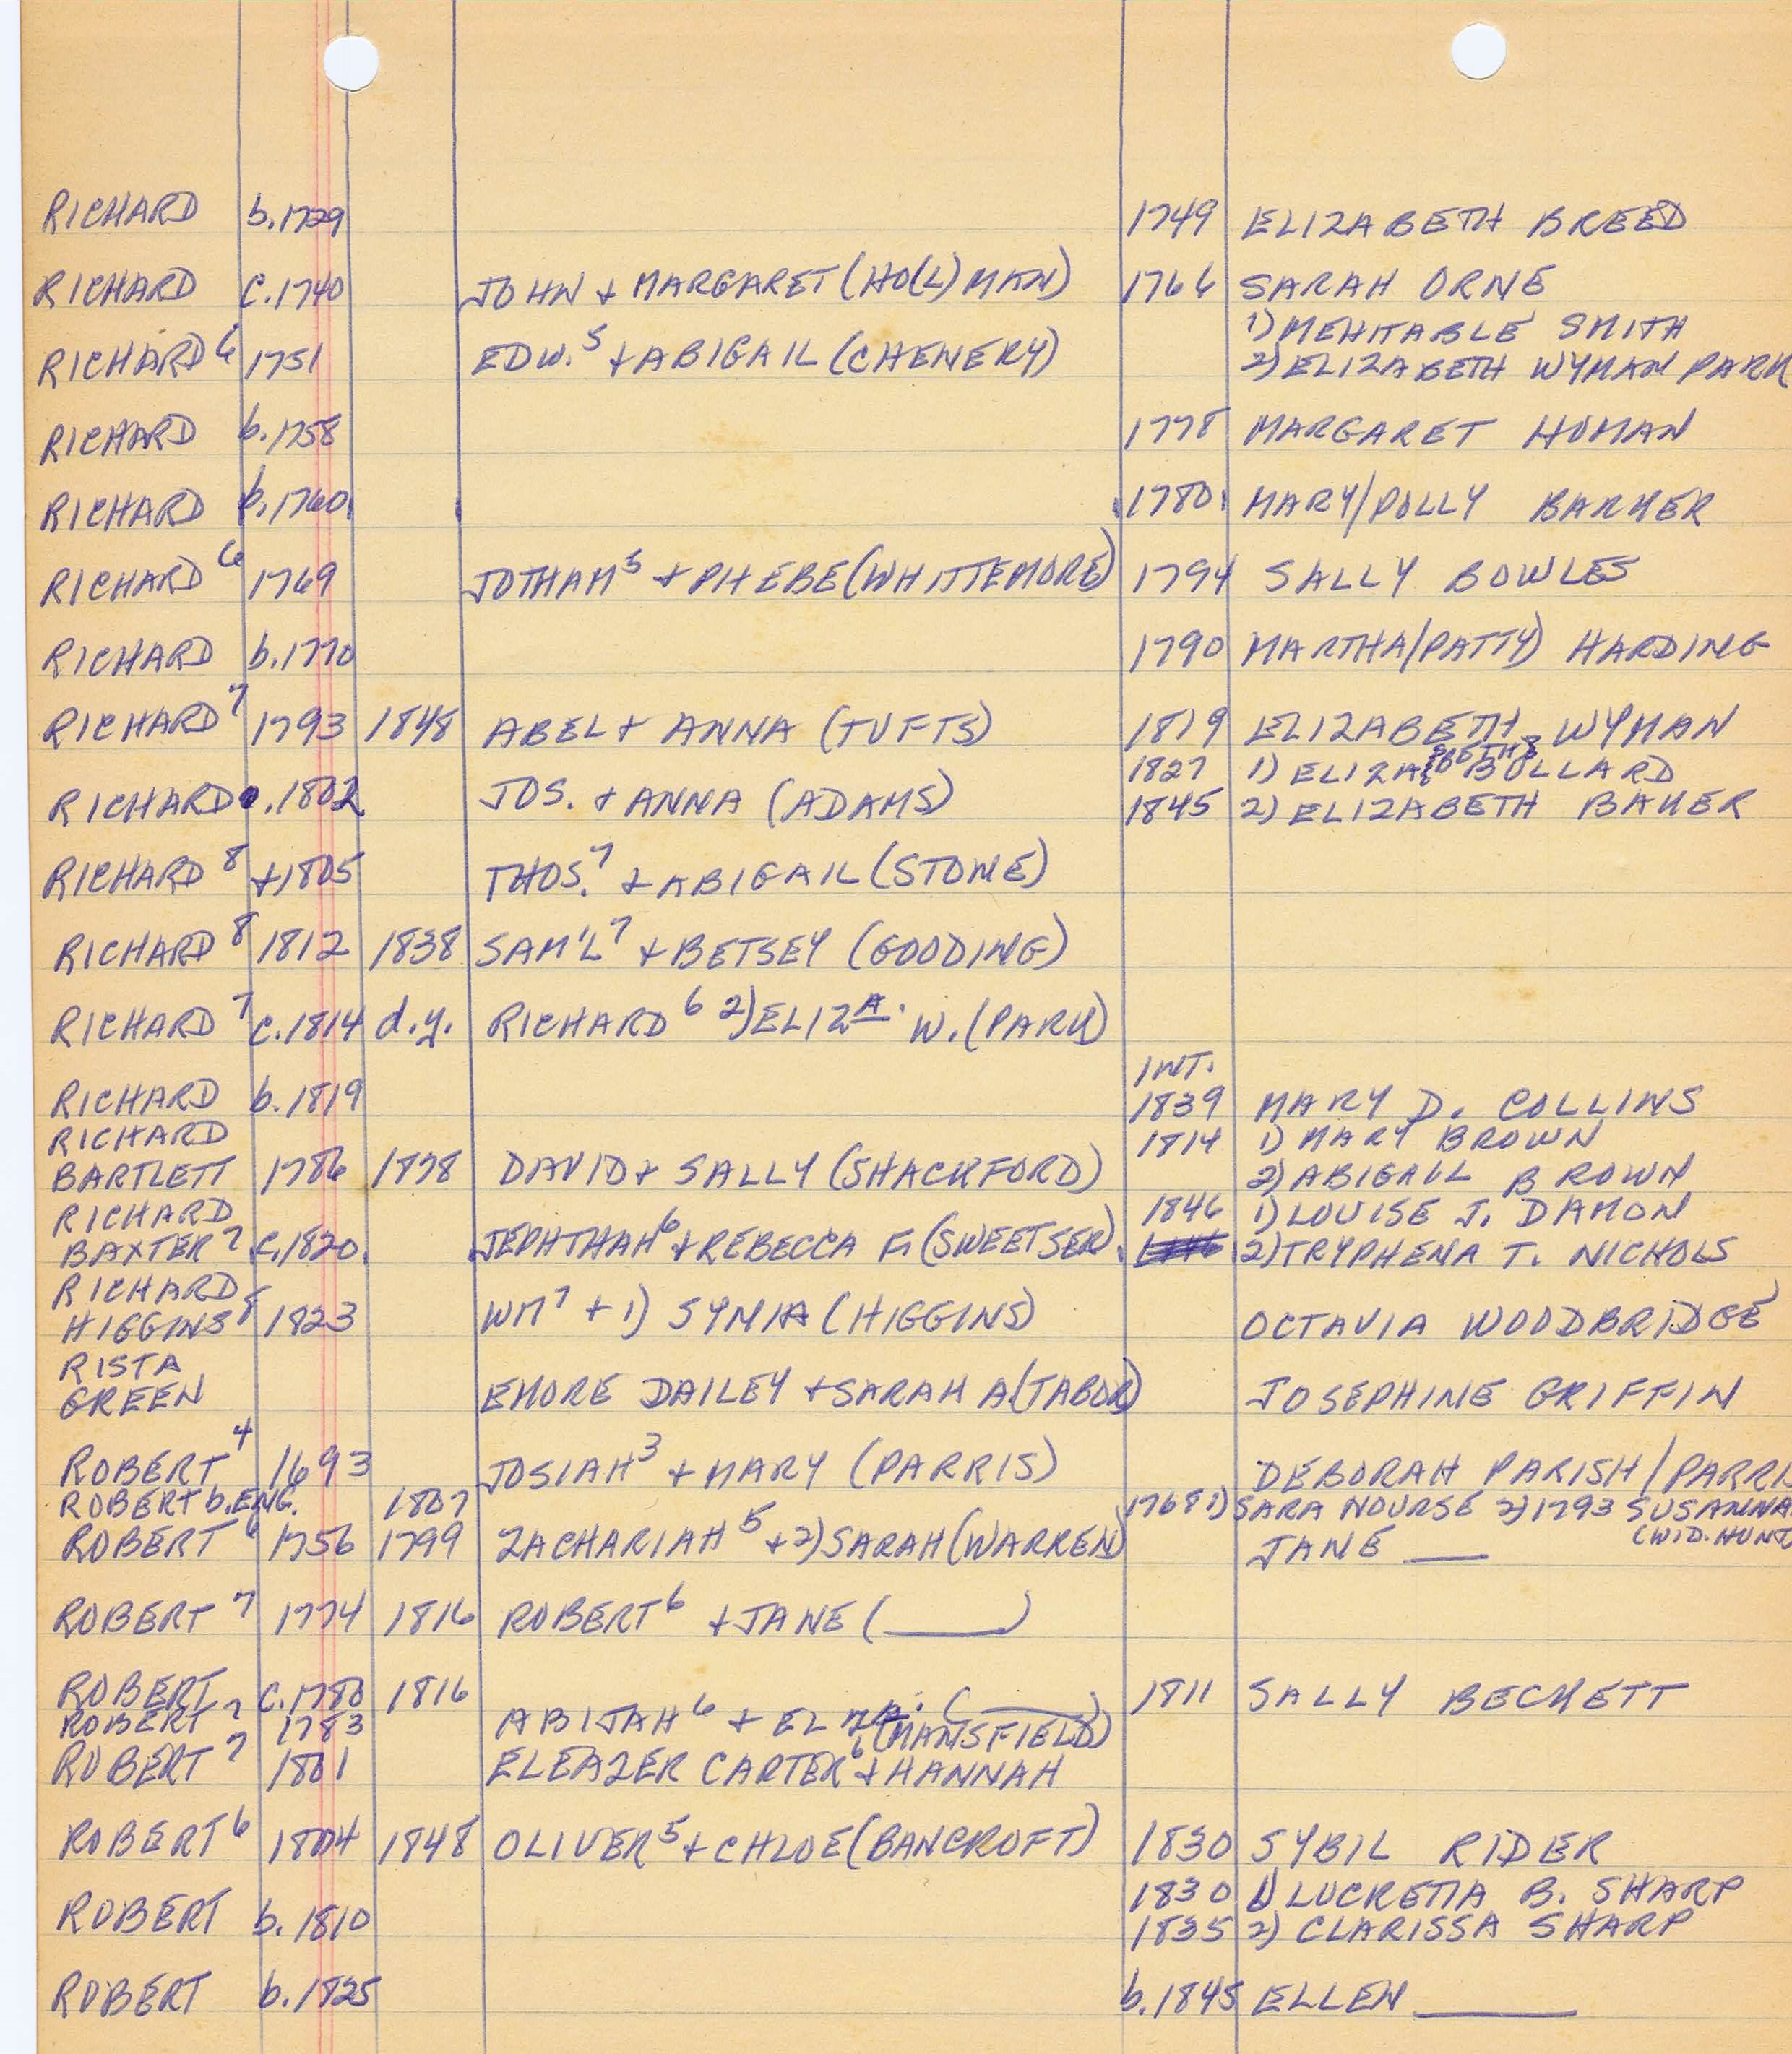 RICHARD b.1729 1749 ELIZABETH BREED
RICHARD C.1740 JOHN + MARGARET (HO(L)MAN) 1766 SARAH ORNE
1) MEHITABLE SMITH
RICHARD 6 1751 EDW. 5 + ABIGAIL (CHENERY) 2) ELIZABETH WYMAN PARK
RICHARD b.1758 1778 MARGARET HOMAN
RICHARD b.1760 1780 MARY/POLLY BARKER
RICHARD 6 1769 JOTHAM 5 + PHEBE (WHITTEMORE) 1794 SALLY BOWLES
RICHARD b.1770 1790 MARTHA/PATTY) HARDING
RICHARD 7 1793 1848 ABEL + ANNA (TUFTS) 1819 ELIZABETH WYMAN
1827 1) ELIZA BETH BULLARD
RICHARD .1802 JOS. + ANNA (ADAMS) 1845 2) ELIZABETH BAKER
RICHARD 8 +1805 THOS. 7 + ABIGAIL (STONE)
RICHARD 8 1812 1838 SAM'L 7 + BETSEY (GOODING)
RICHARD 7 C.1814 d.y. RICHARD 6 2) ELIZA. W. (PARK)
INT.
RICHARD b.1819 1839 MARY D. COLLINS
RICHARD 1814 1) MARY BROWN
BARTLETT 1786 1878 DAVID + SALLY (SHACKFORD) 2) ABIGAIL BROWN
RICHARD 1846 1) LOUISE J. DAMON
BAXTER 7 C.1820 JEPHTHAH 6 + REBECCA F. (SWEETSER) 2) TRYPHENA T. NICHOLS
RICHARD
HIGGINS 8 1823 WM 7 + 1) SYNIA (HIGGINS) OCTAVIA WOODBRIDGE
RISTA
GREEN EMORE DAILEY + SARAH A. (TABOR) JOSEPHINE GRIFFIN
ROBERT 4 1693 JOSIAH 3 + MARY (PARRIS) DEBORAH PARISH/PARRIS
ROBERT b.ENG. 1807 1768 1) SARA NOURSE 2) 1793 SUSANNA
(WID. HUNT
ROBERT 6 1756 1799 ZACHARIAH 5 + 2) SARAH (WARREN) JANE ___
ROBERT 7 1774 1816 ROBERT 6 + JANE (____)
ROBERT C.1780 1816 1811 SALLY BECKETT
ROBERT 7 1783 ABIJAH 6 + ELIZA. (MANSFIELD)
ROBERT 7 1801 ELEAZER CARTER 6 + HANNAH
ROBERT 6 1804 1848 OLIVER 5 + CHLOE (BANCROFT) 1830 SYBIL RIDER
1830 1) LUCRETIA B. SHARP
ROBERT b.1810 1835 2) CLARISSA SHARP
ROBERT b.1825 b.1845 ELLEN ____